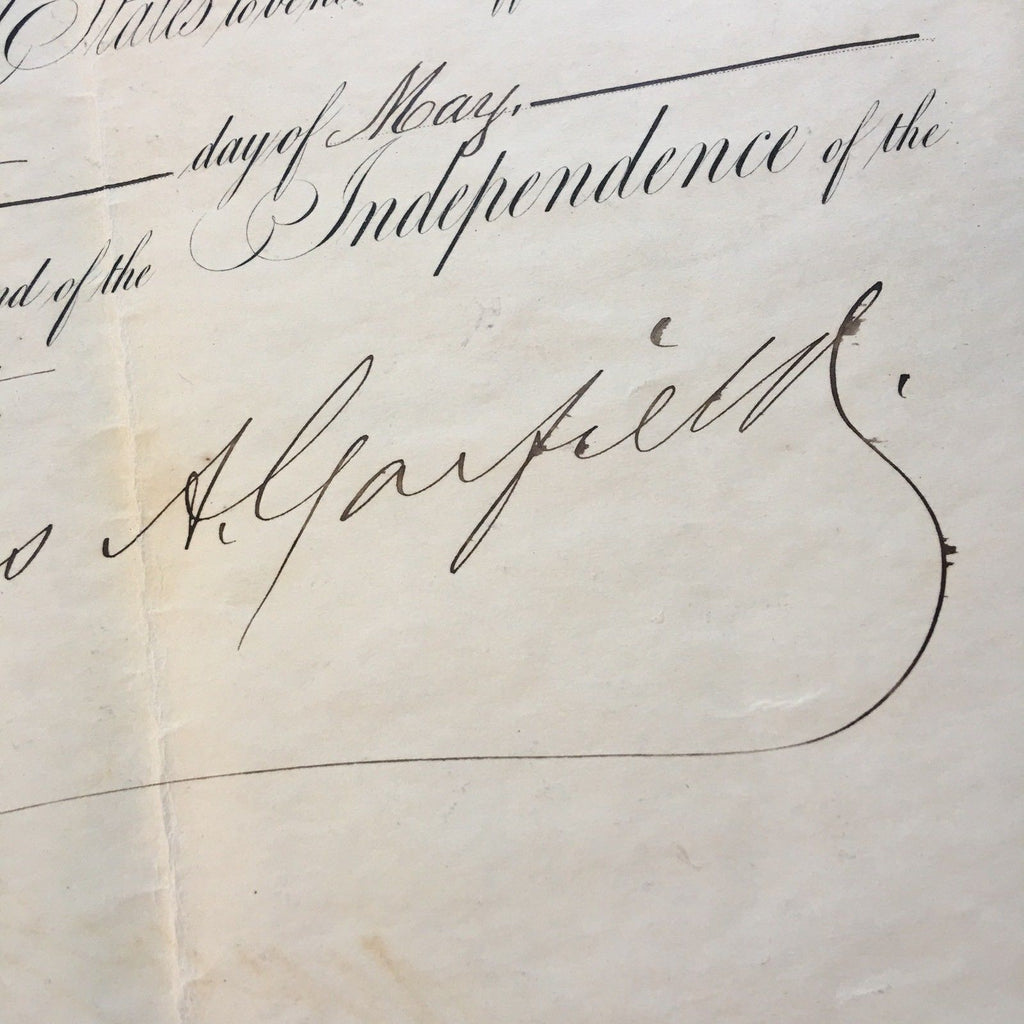 States to be
day of May.
nd of the Independence of the
s A. Garfield.